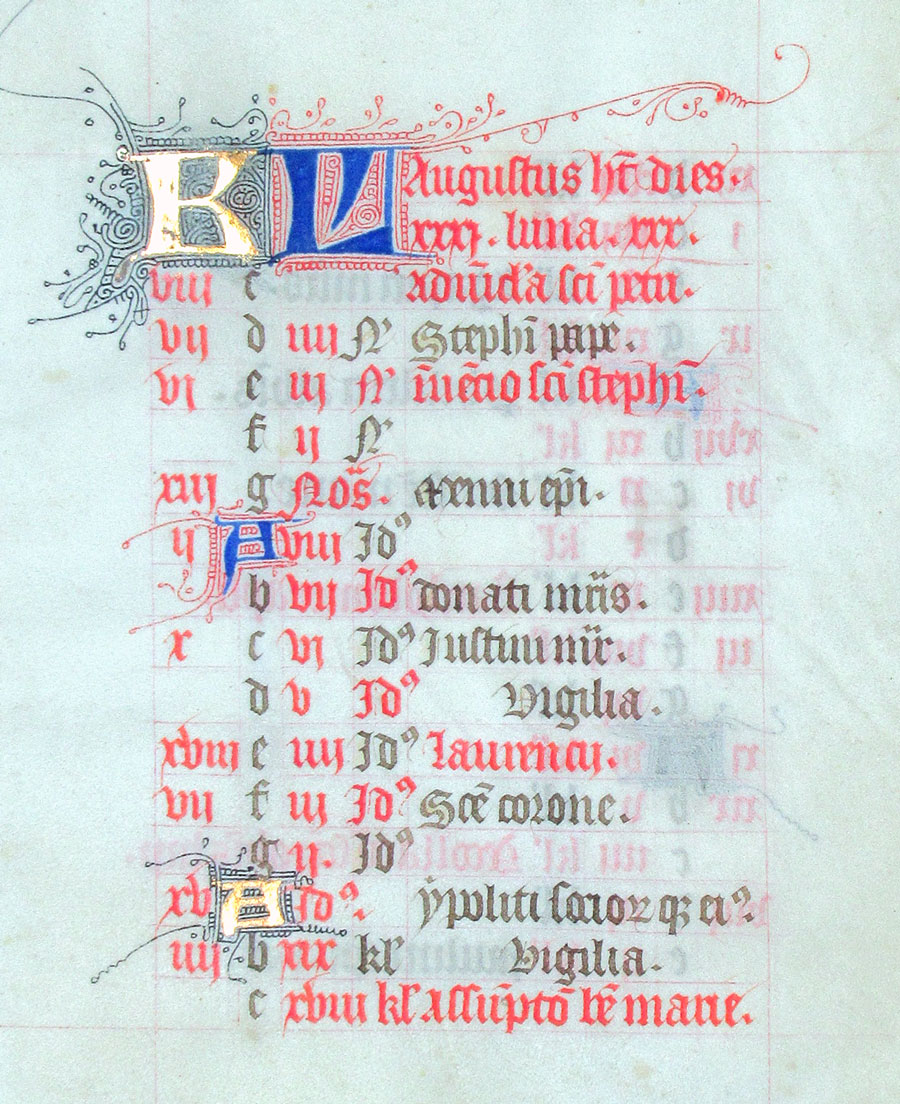 KL Augustus ht̄ dies.
xxxj. luna. xxx.
viij c Advīcl'a sc̄i petri.
vij d iiij N' Stephī pape.
vj e iij N' īuēcio sc̄i stephī.
f ij N'
xiij g Nōs. ep̄i.
ij A viij Id⁹
b vij Id⁹ donati mr̄is.
x c vj Id⁹ Justini mr̄.
d v Id⁹ Vigilia.
xviij e iiij Id⁹ Laurēncij.
vij f iij Id⁹ Scē corone.
g ij. Id⁹
xv A Id⁹. ẏpoliti socioꝝ qꝫ ei⁹.
iiij b xix kl' Vigilia.
c xviij kl' Assūpto᷑ bē marie.